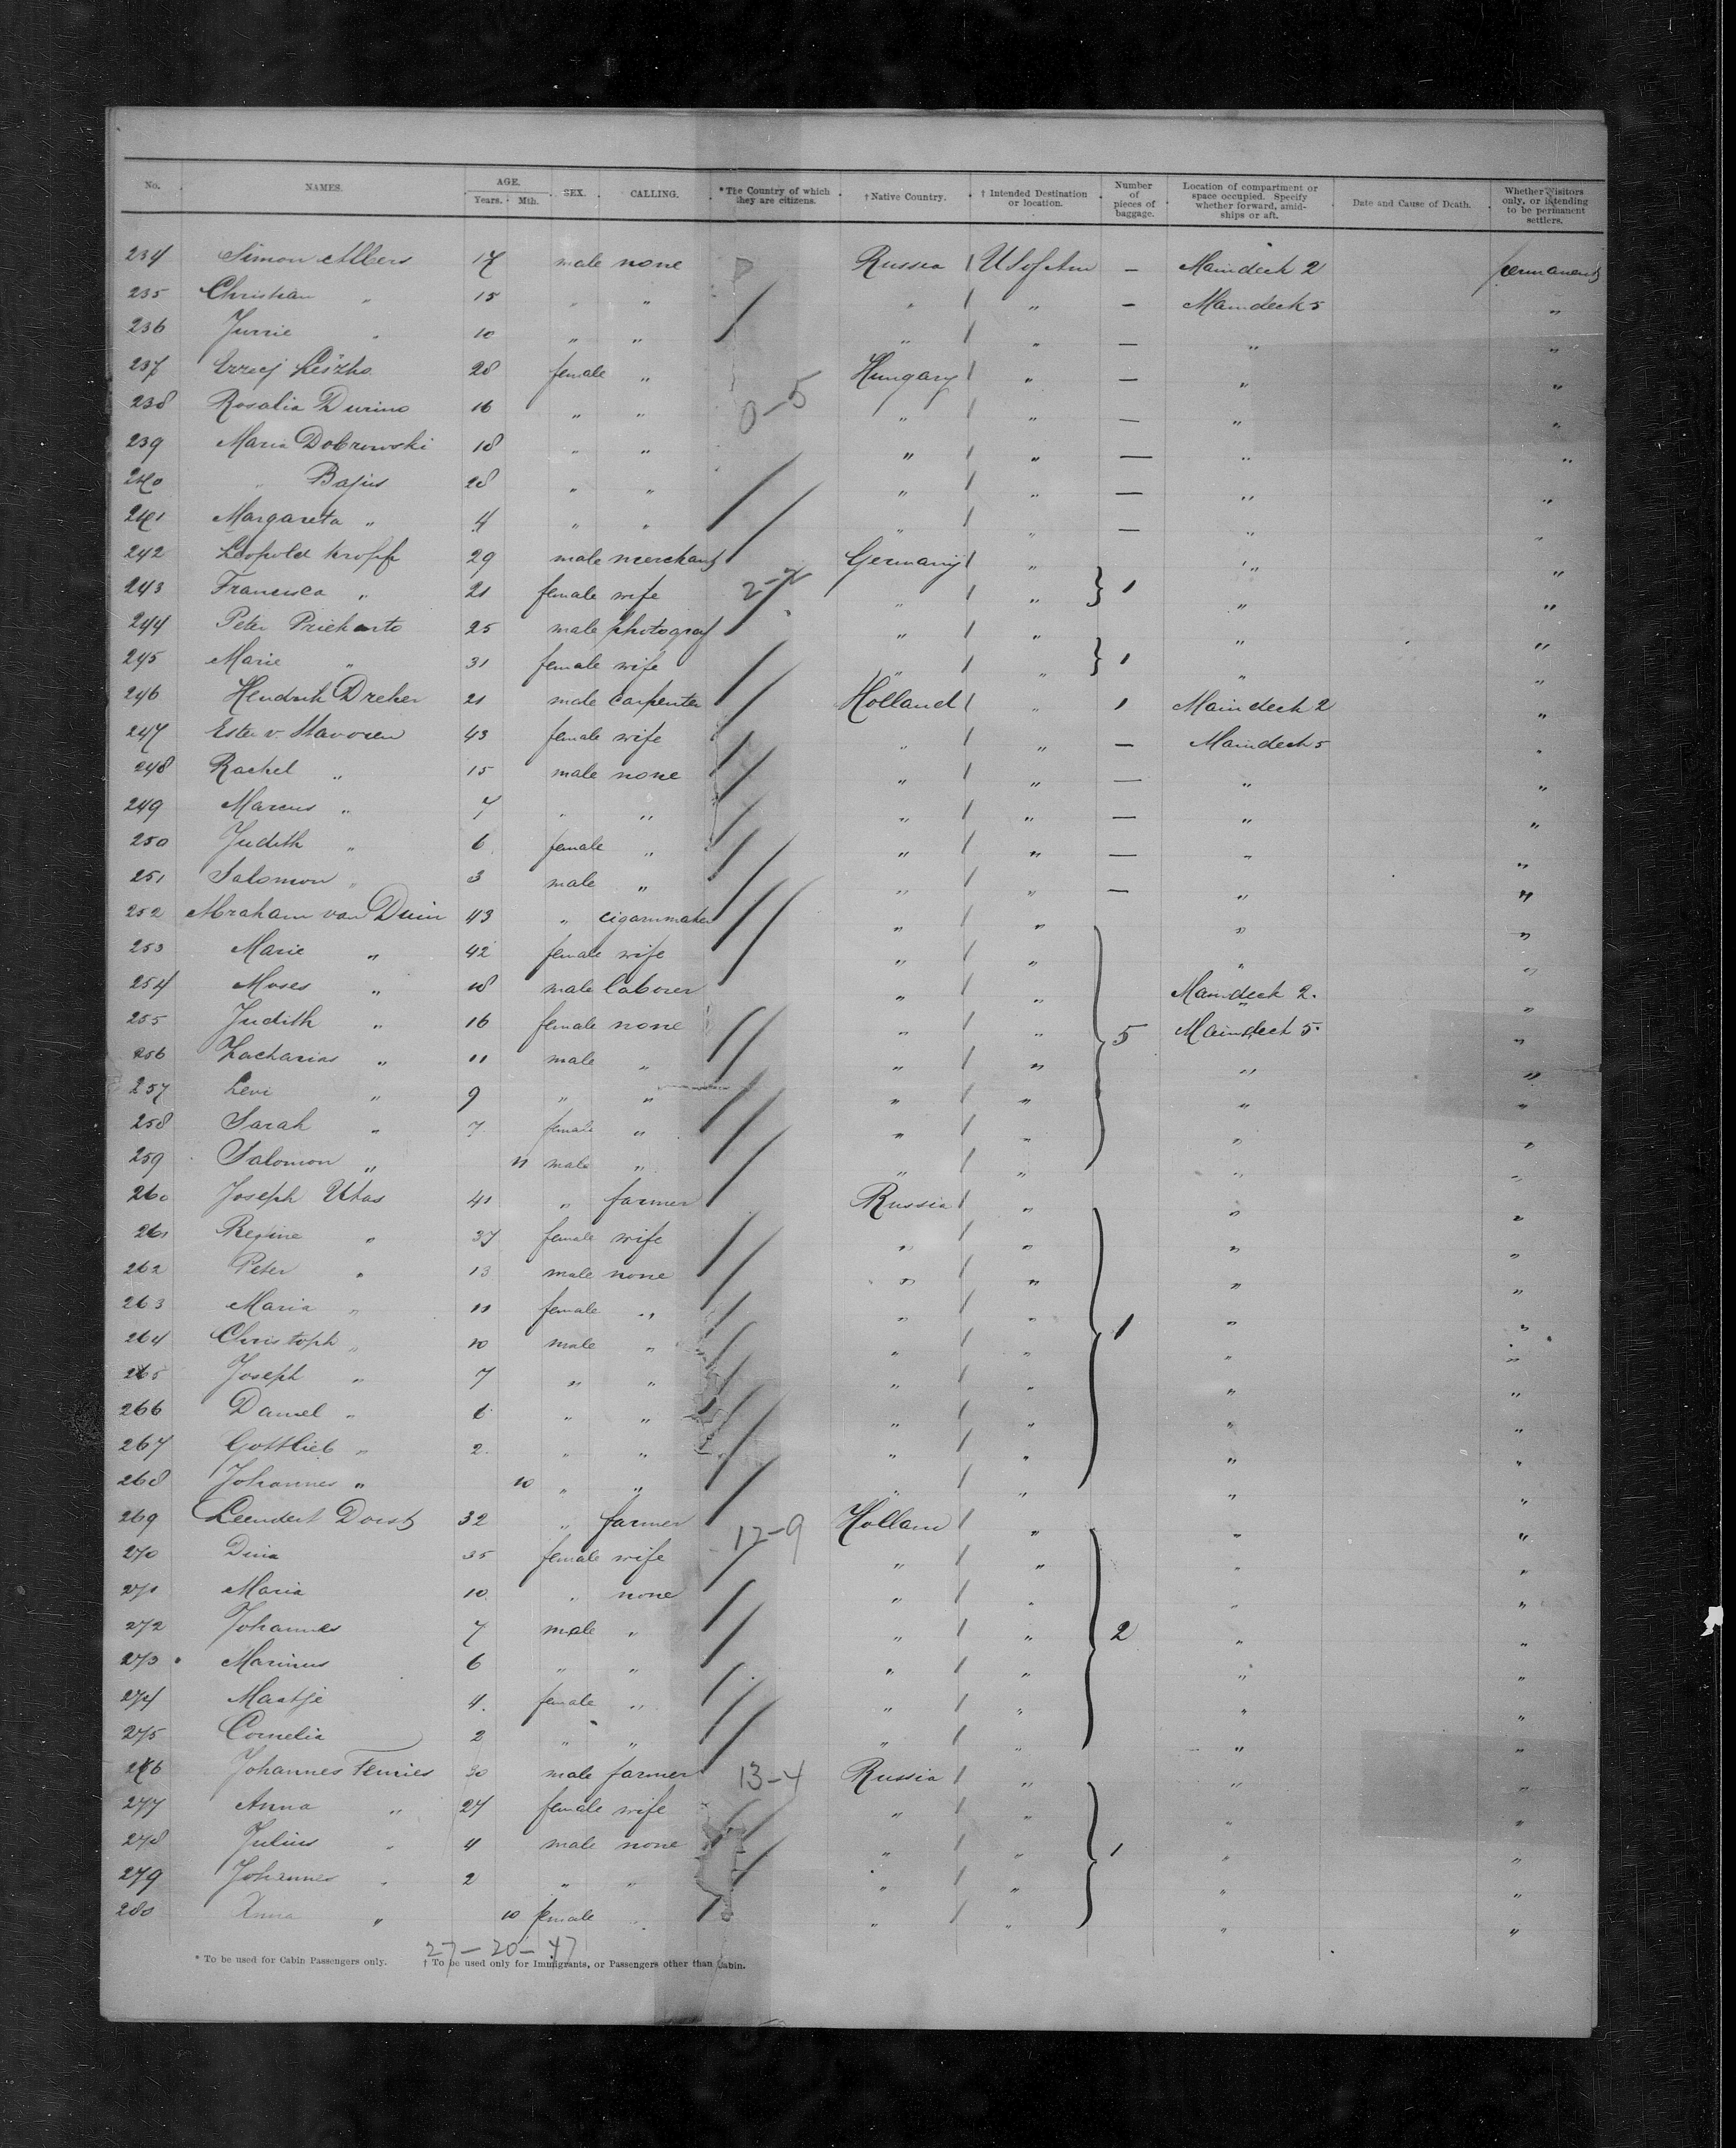 No. NAMES. AGE. Years. Mth. SEX. CALLING. *The Country of which they are citizens. †Native Country. †Intended Destination or location. Number of pieces of baggage. Location of compartment or space occupied. Specify whether forward, amidships or aft. Date and Cause of Death. Whether Visitors only, or intending to be permanent settlers.
234 Simon Albers 17 male none Russia / U S of Am — Maindeck 2 permanent
235 Christian " 15 " " " / " — Maindeck 5 "
236 Jurrie " 10 " " " / " — " "
237 28 female " Hungary / " — " "
238 Rosalia Durino 16 " " " / " — " "
0-5
239 Maria Dobrowski 18 " " " / " — " "
240 " Bajus 28 " " " / " — " "
241 Margareta " 4 " " " / " — " "
242 Leopold Kropff 29 male merchant Germany / " " "
243 Francisca " 21 female wife " / " } 1 " "
244 Peter 25 male photograf " / " " "
245 Marie " 31 female wife " / " } 1 " "
246 Hendrik Dreher 21 male carpenter Holland / " 1 Maindeck 2 "
247 Ester v. Stavoren 43 female wife " / " — Maindeck 5 "
248 Rachel " 15 male none " / " — " "
249 Marcus " 7 " " " / " — " "
250 Judith " 6 female " " / " — " "
251 Salomon " 3 male " " / " — " "
252 Abraham van Duin 43 " cigarmaker " / " " "
253 Marie " 42 female wife " / " " "
254 Moses " 18 male laborer " / " Maindeck 2. "
255 Judith " 16 female none " / " 5 Maindeck 5. "
256 Zacharias " 11 male " " / " " "
257 Levi " 9 " " " / " " "
258 Sarah " 7 female " " / " " "
259 Salomon " 11 male " " / " " "
260 Joseph Utas 41 " farmer Russia / " " "
261 Regine " 37 female wife " / " " "
262 Peter " 13 male none " / " " "
263 Maria " 11 female " " / " 1 " "
264 Christoph " 10 male " " / " " "
265 Joseph " 7 " " " / " " "
266 Daniel " 6 " " " / " " "
267 Gottlieb " 2 " " " / " " "
268 Johannes " 10 " " " / " " "
269 Leendert Dorst 32 " farmer 12-9 Holland / " " "
270 Dina 35 female wife " / " " "
271 Maria 10 " none " / " " "
272 Johannes 7 male " " / " 2 " "
273 Marinus 6 " " " / " " "
274 Maatje 4 female " " / " " "
275 Cornelia 2 " " " / " " "
276 Johannes 30 male farmer 13-4 Russia / " " "
277 Anna " 27 female wife " / " " "
278 Julius " 4 male none " / " 1 " "
279 Johannes " 2 " " " / " " "
280 Anna " 10 female " " / " " "
27-20-47
* To be used for Cabin Passengers only. † To be used only for Immigrants, or Passengers other than Cabin.